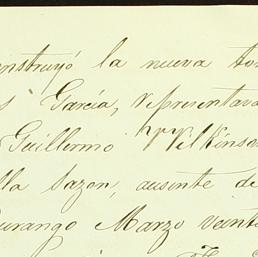 onstruyó la nueva tor
s García, representava
Guillermo Wilkinson
lla sazon, ausente de
Durango Marzo veint